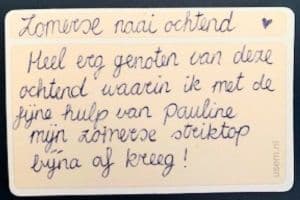 Zomerse naai ochtend ♥
Heel erg genoten van deze
ochtend waarin ik met de
fijne hulp van Pauline
mijn zomerse striktop
bijna af kreeg!
usem.nl